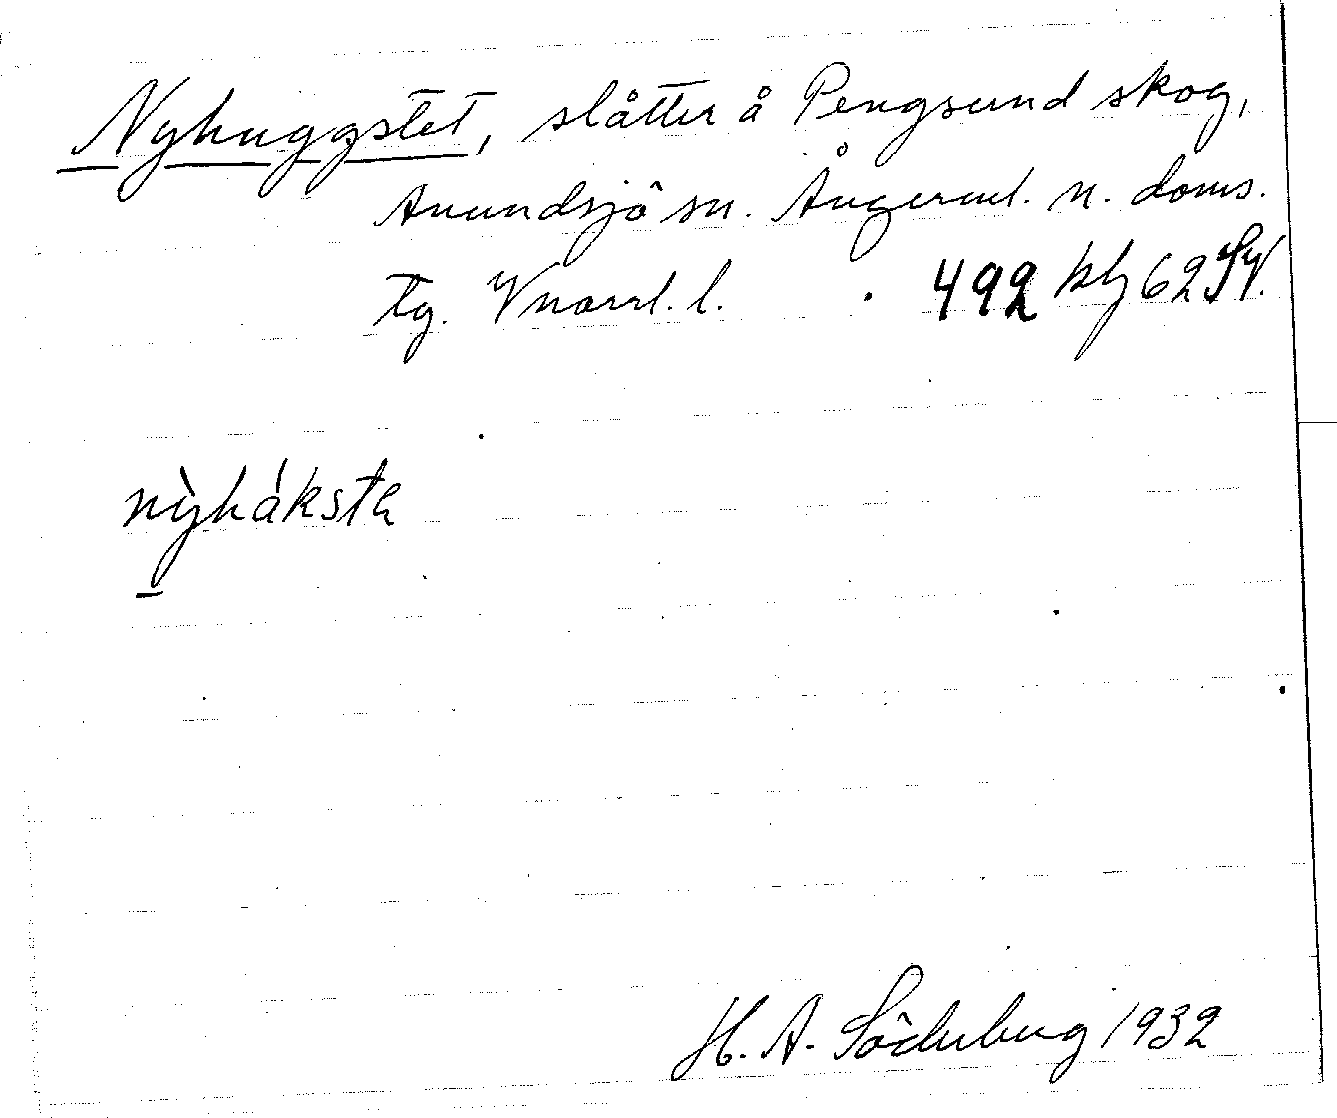 Nyhuggstet, slåtter å Pengsund skog,
Anundsjö sn. Ångerml. n. doms.
tg. Vnorrl. l. 492 blz 62 SV.
nỳháksta
H. A. Söderberg 1932